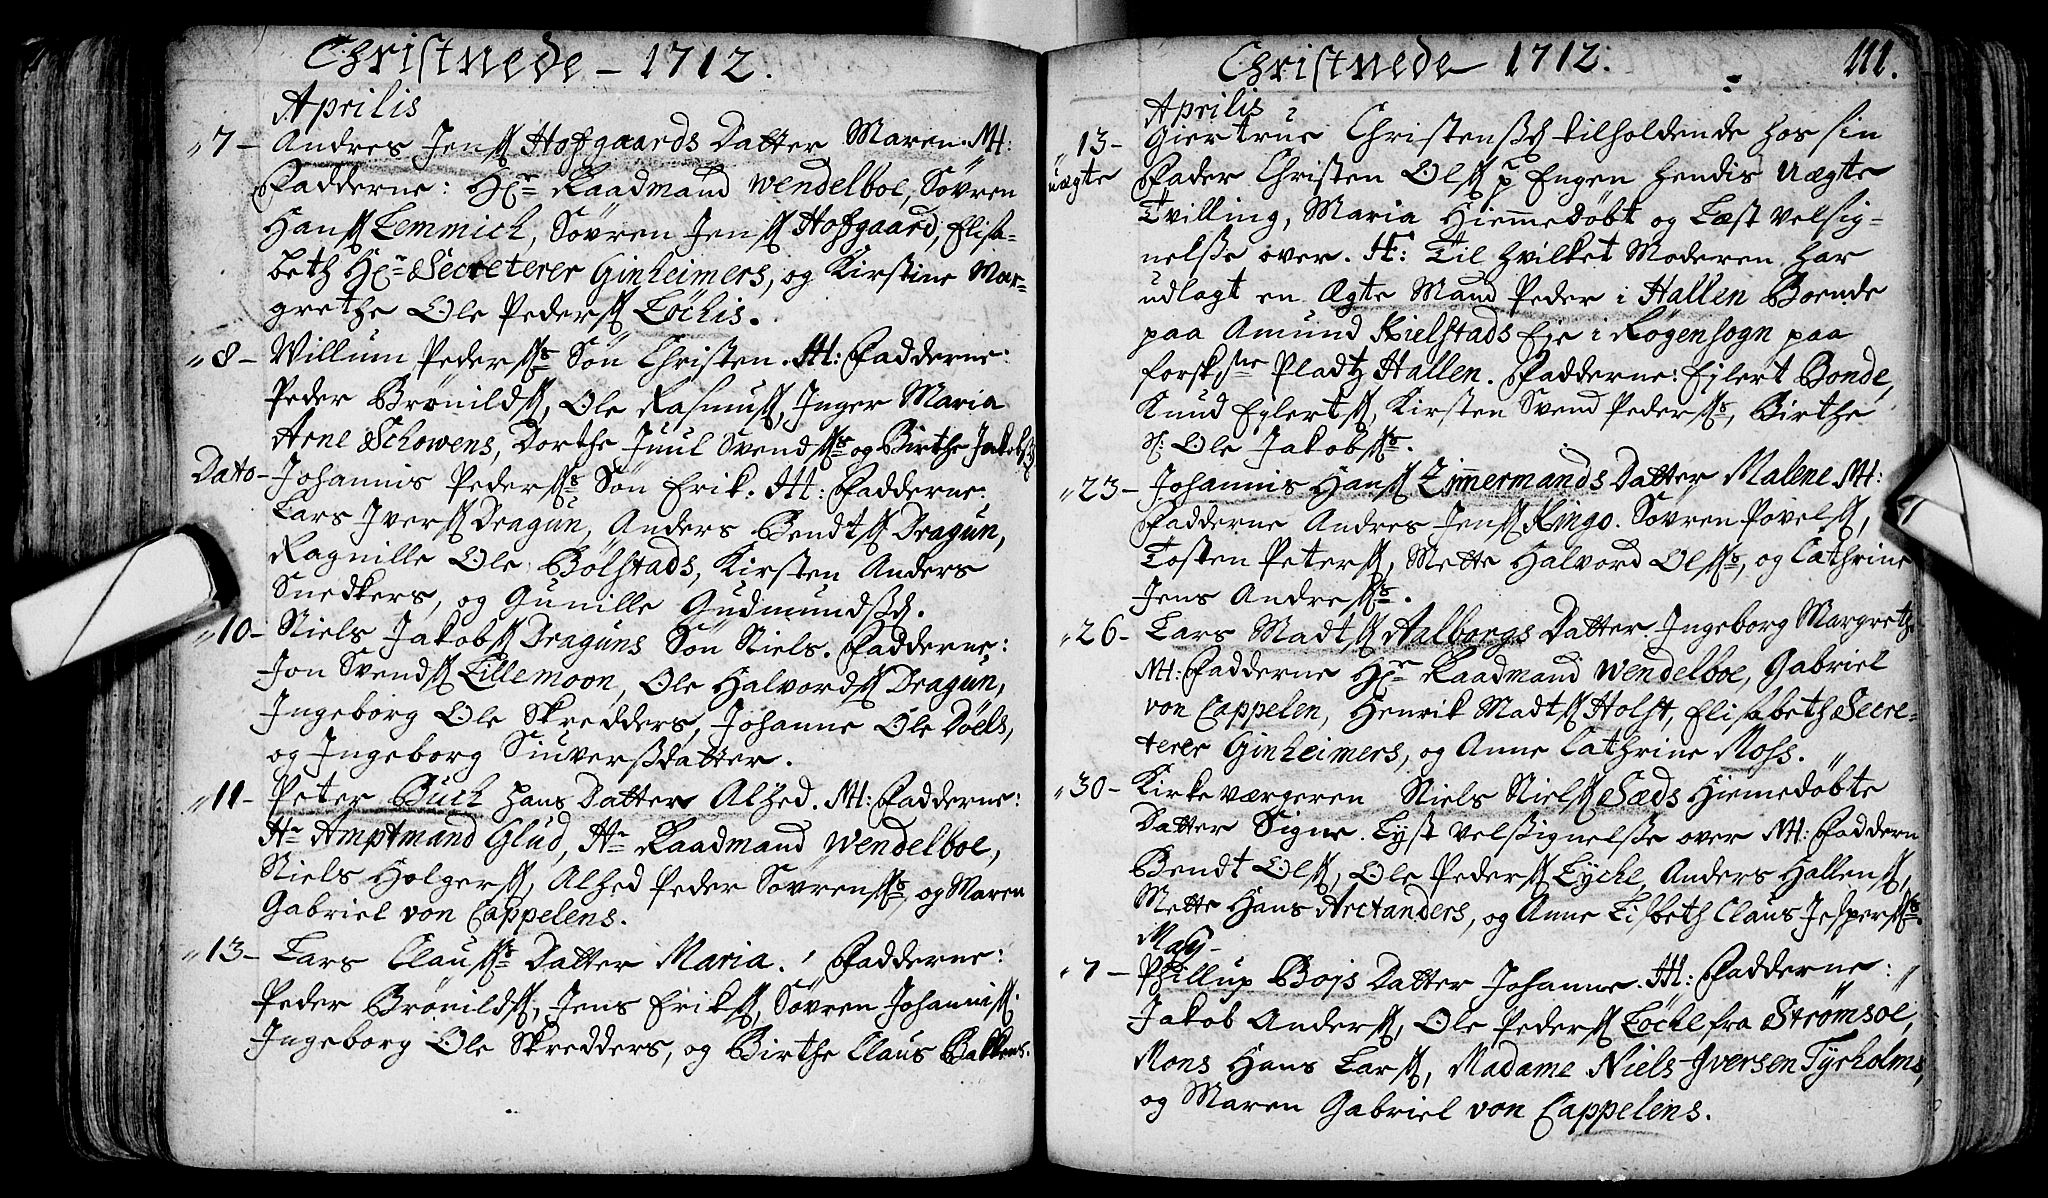 Christnede - 1712.
Aprilis
7 - Andres Jens Hofgaards Datter Maren. M:
Fadderne: Hr Raadmand Wendelboe, Søvren
Hans Lemmich, Søvren Jens Hofgaard, Elisa-
beth Hr Secreterer Ginheimers, og Kirstine Mar-
grethe Ole Peders Löchis.
8 - Willum Peders Søn Christen. M: Fadderne:
Peder Brönilds, Ole Rasmus, Inger Maria
Arne Schowens, Dorthe Juul Svends og Birthe Jakobs
Dato - Johannis Peders Søn Erik. M: Fadderne:
Lars Ivers Dragun, Anders Bendts Dragun,
Ragnille Ole Bölstads, Kirsten Anders
Snedkers, og Gunille Gudmundsd.
10 - Niels Jakobs Draguns Søn Niels. Fadderne:
Jon Svends Lillemoon, Ole Halvords Dragun,
Ingeborg Ole Skredders, Johanne Ole Döels,
og Ingeborg Siuversdatter.
11 - Peter Buch hans Datter Alhed. M: Fadderne:
Hr Amptmand Glud, Hr Raadmand Wendelboe,
Niels Holgers, Alhed Peder Søvrens og Maren
Gabriel von Cappelens.
13 - Lars Claus Datter Maria. Fadderne:
Peder Brönilds, Jens Eriks, Søvren Johannis
Ingeborg Ole Skredders, og Birthe Claus Bakkens.
Christnede 1712. 111.
Aprilis
13 - Giertrue Christensd tilholdende hos sin
uægte Fader Christen Ols p Engen hendis Uægte
Tvilling, Maria Hiemmedøbt og Læst velsig-
nelse over. M: Til hvilket Moderen har
udlagt en Ægte Mand Peder i Hallen Boende
paa Amund Kielstads Eje i Røgen sogn paa
forskne Pladtz Hallen. Fadderne: Ejlert Bonde,
Knud Eglerts, Kirsten Svend Peders, Birthe
Ole Jakobs.
23 - Johannis Hans Zimmermands Datter Malene M:
Fadderne Andres Jens Ringo. Søvren Povels,
Tosten Peters, Mette Halvord Ols, og Cathrine
Jens Andres.
26 - Lars Madts Aalborgs Datter Ingeborg Margreth
M: Fadderne Hr Raadmand Wendelboe, Gabriel
von Cappelen, Henrik Madts Holst, Elisabeth Secre-
terer Ginheimers, og Anne Cathrine Moss.
30 - Kirkeværgeren Niels Niels Sæds Hiemedøbte
Datter Signe. Lyst velsignelse over M: Faddern
Bendt Ols, Ole Peders Lyche, Anders Hallens,
Mette Hans Arctanders, og Anne Lisbeth Claus Jespers
May
7 - Phillup Bojs Datter Johanne. M: Fadderne:
Jakob Anders, Ole Peders Löche fra Strømsoe,
Mons Hans Lars, Madame Niels Iversen Tyrholms,
og Maren Gabriel von Cappelens.